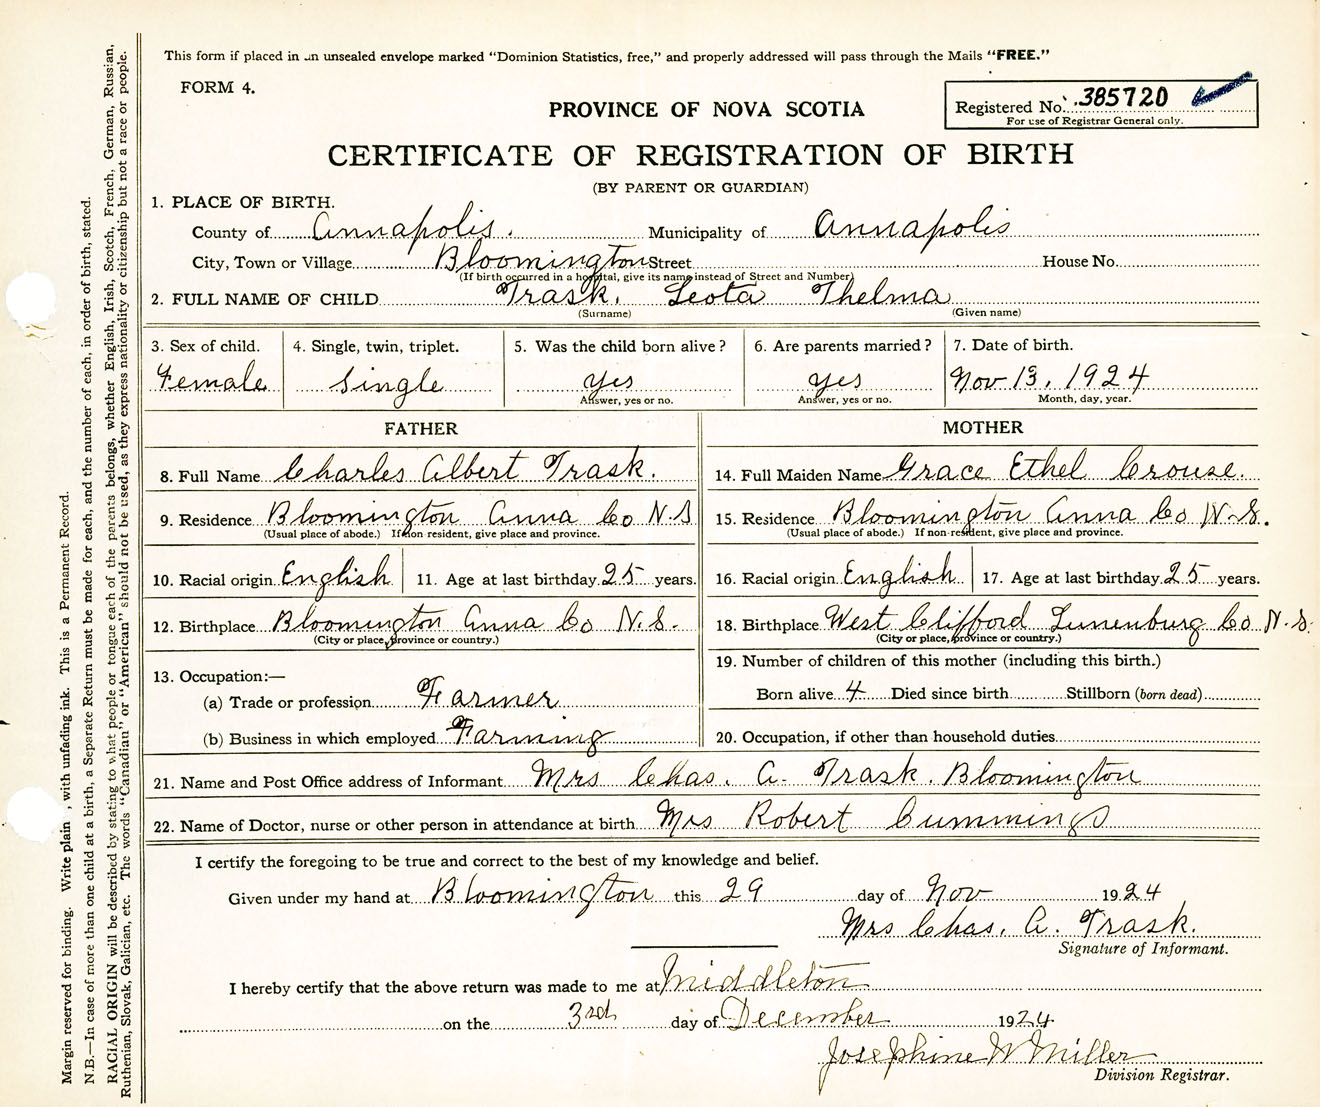 This form if placed in an unsealed envelope marked "Dominion Statistics, free," and properly addressed will pass through the Mails "FREE."
FORM 4.
Registered No. 385720
For use of Registrar General only.
PROVINCE OF NOVA SCOTIA
CERTIFICATE OF REGISTRATION OF BIRTH
(BY PARENT OR GUARDIAN)
1. PLACE OF BIRTH.
County of Annapolis. Municipality of Annapolis
City, Town or Village Bloomington Street House No.
(If birth occurred in a hospital, give its name instead of Street and Number)
2. FULL NAME OF CHILD Trask. Leota Thelma
(Surname) (Given name)
3. Sex of child. 4. Single, twin, triplet. 5. Was the child born alive? 6. Are parents married? 7. Date of birth.
Female Single Yes Yes Nov 13, 1924
Answer, yes or no. Answer, yes or no. Month, day, year.
FATHER MOTHER
8. Full Name Charles Albert Trask. 14. Full Maiden Name Grace Ethel Crouse.
9. Residence Bloomington Anna Co N.S 15. Residence Bloomington Anna Co N.S.
(Usual place of abode.) If non resident, give place and province. (Usual place of abode.) If non-resident, give place and province.
10. Racial origin English 11. Age at last birthday 25 years. 16. Racial origin English 17. Age at last birthday 25 years.
12. Birthplace Bloomington Anna Co N.S. 18. Birthplace West Clifford Lunenburg Co N.S.
(City or place, province or country.) (City or place, province or country.)
13. Occupation:— 19. Number of children of this mother (including this birth.)
(a) Trade or profession Farmer Born alive 4 Died since birth Stillborn (born dead)
(b) Business in which employed Farming 20. Occupation, if other than household duties
21. Name and Post Office address of Informant Mrs Chas. A. Trask. Bloomington
22. Name of Doctor, nurse or other person in attendance at birth Mrs Robert Cummings
I certify the foregoing to be true and correct to the best of my knowledge and belief.
Given under my hand at Bloomington this 29 day of Nov 1924
Mrs Chas. A. Trask.
Signature of Informant.
I hereby certify that the above return was made to me at Middleton
on the 3rd day of December 1924
Josephine W Miller
Division Registrar.
Margin reserved for binding. Write plain , with unfading ink. This is a Permanent Record.
N.B.—In case of more than one child at a birth, a Separate Return must be made for each, and the number of each, in order of birth, stated.
RACIAL ORIGIN will be described by stating to what people or tongue each of the parents belongs, whether English, Irish, Scotch, French, German, Russian,
Ruthenian, Slovak, Galician, etc. The words "Canadian" or "American" should not be used, as they express nationality or citizenship but not a race or people.